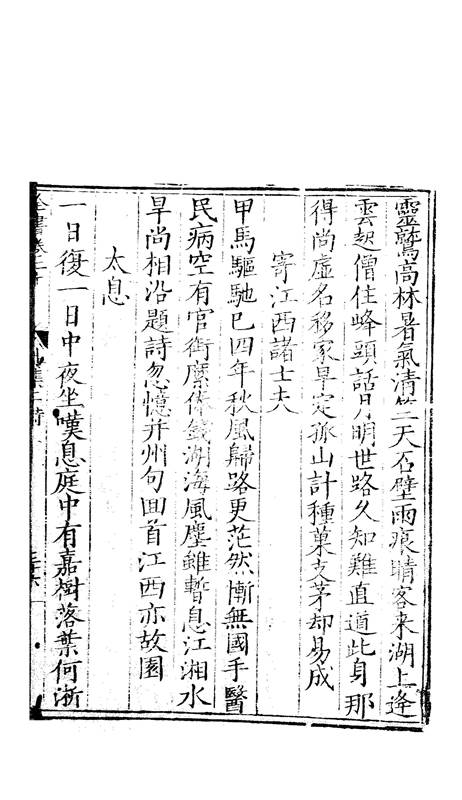 靈鷲高林暑氣清竺天石壁雨痕晴客来湖上逄
雲起僧住峰頭話月明世路久知難直道此身那
得尚虛名移家早定孤山計種菓支茅却易成
寄江西諸士夫
甲馬驅馳已四年秋風歸路更茫然慚無國手醫
民病空有官銜縻俸錢湖海風塵雖暫息江湘水
旱尚相沿題詩忽憶并州句回首江西亦故園
太息
一日復一日中夜坐嘆息庭中有嘉樹落葉何淅
全書卷二十
二詩